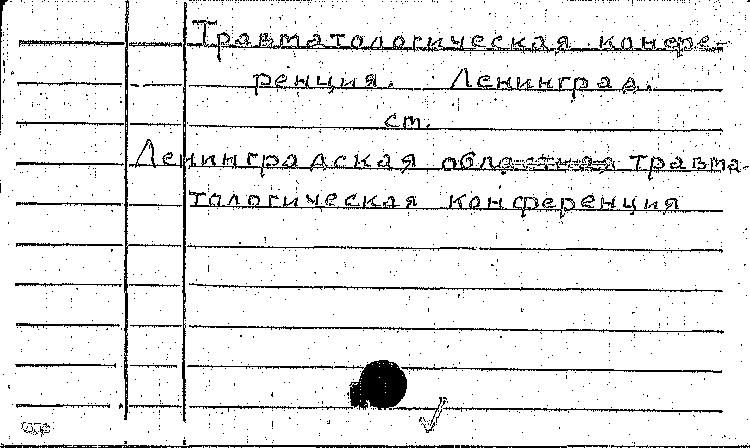 Травматологическая конфе-
ренция. Ленинград.
ст.
Ленинградская областная травма-
тологическая конференция